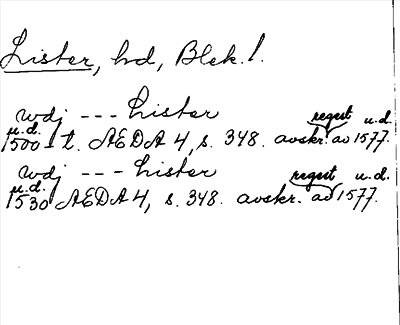 Lister, hd, Blek. l.
wdj --- Lister regest u.d.
u.d.
1500-t. AEDA 4, s. 348. avskr. av 1577.
wdj --- Lister regest u.d.
u.d.
1530 AEDA 4, s. 348. avskr. av 1577.